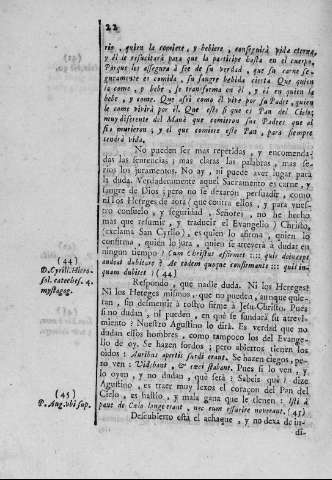 22
rio, quien la comiere, y bebiere, conseguirá vida eterna,
y èl le resucitará para que la participe hasta en el cuerpo.
Porque les assegura à fee de su verdad, que su carne se-
guramente es comida, su sangre bebida cierta. Que quien
la come, y bebe, se transforma en èl, y èl en quien la
bebe, y come. Que assi como èl vive por su Padre, quien
le come vivirà por èl. Que este si que es Pan del Cielo
muy diferente del Manà que comieron sus Padres que al
fin murieron; y el que comiere este Pan, para siempre
tendrà vida.
No pueden ser mas repetidas, y encomenda-
das las sentencias; mas claras las palabras, mas se-
rios los juramentos. No ay, ni puede aver lugar para
la duda. Verdaderamente aquel Sacramento es carne, y
sangre de Dios; pero no se dexaron persuadir, como
ni los Hereges de aora (que contra ellos, y para vues-
tro consuelo, y seguridad, Señores, no he hecho
mas que resumir, y traducir el Evangelio) Christo,
(exclama San Cyrilo), es quien lo afirma, quien lo
confirma, quien lo jura, quien se atreverà à dudar en
ningun tiempo? Cum Christus affirmet :::: quis deinceps
audeat dubitare? Ac eodem quoque confirmante :::: quis in-
quam dubitet? (44)
(44)
D. Cyrill. Hiero-
sol. cateches. 4.
mystagog.
Respondo, que nadie duda. Ni los Hereges?
Ni los Hereges mismos, que no pueden, aunque quie-
ran, sin desmentir à rostro firme à Jesu-Christo. Pues
si no dudan, ni pueden, en què se fundarà su atrevi-
miento? Nuestro Agustino lo dirà. Es verdad que no
dudan essos hombres, como tampoco los del Evange-
lio de oy. Se hazen sordos; pero abiertos tienen los
oidos: Auribus apertis surdi erant. Se hazen ciegos, pe-
ro ven: Videbant, & cæci stabant. Pues si lo ven, y
lo oyen, y no dudan, què serà? Sabeis què? dize
Agustino, es traer muy lexos el coraçon del Pan del
Cielo, es hastio, y mala gana que le tienen: Isti à
pane de Cælo longe erant, nec eum esurire noverant. (45)
(45)
P. Aug. ubi sup.
Descubierto està el achaque, y no dexa de in-
di-